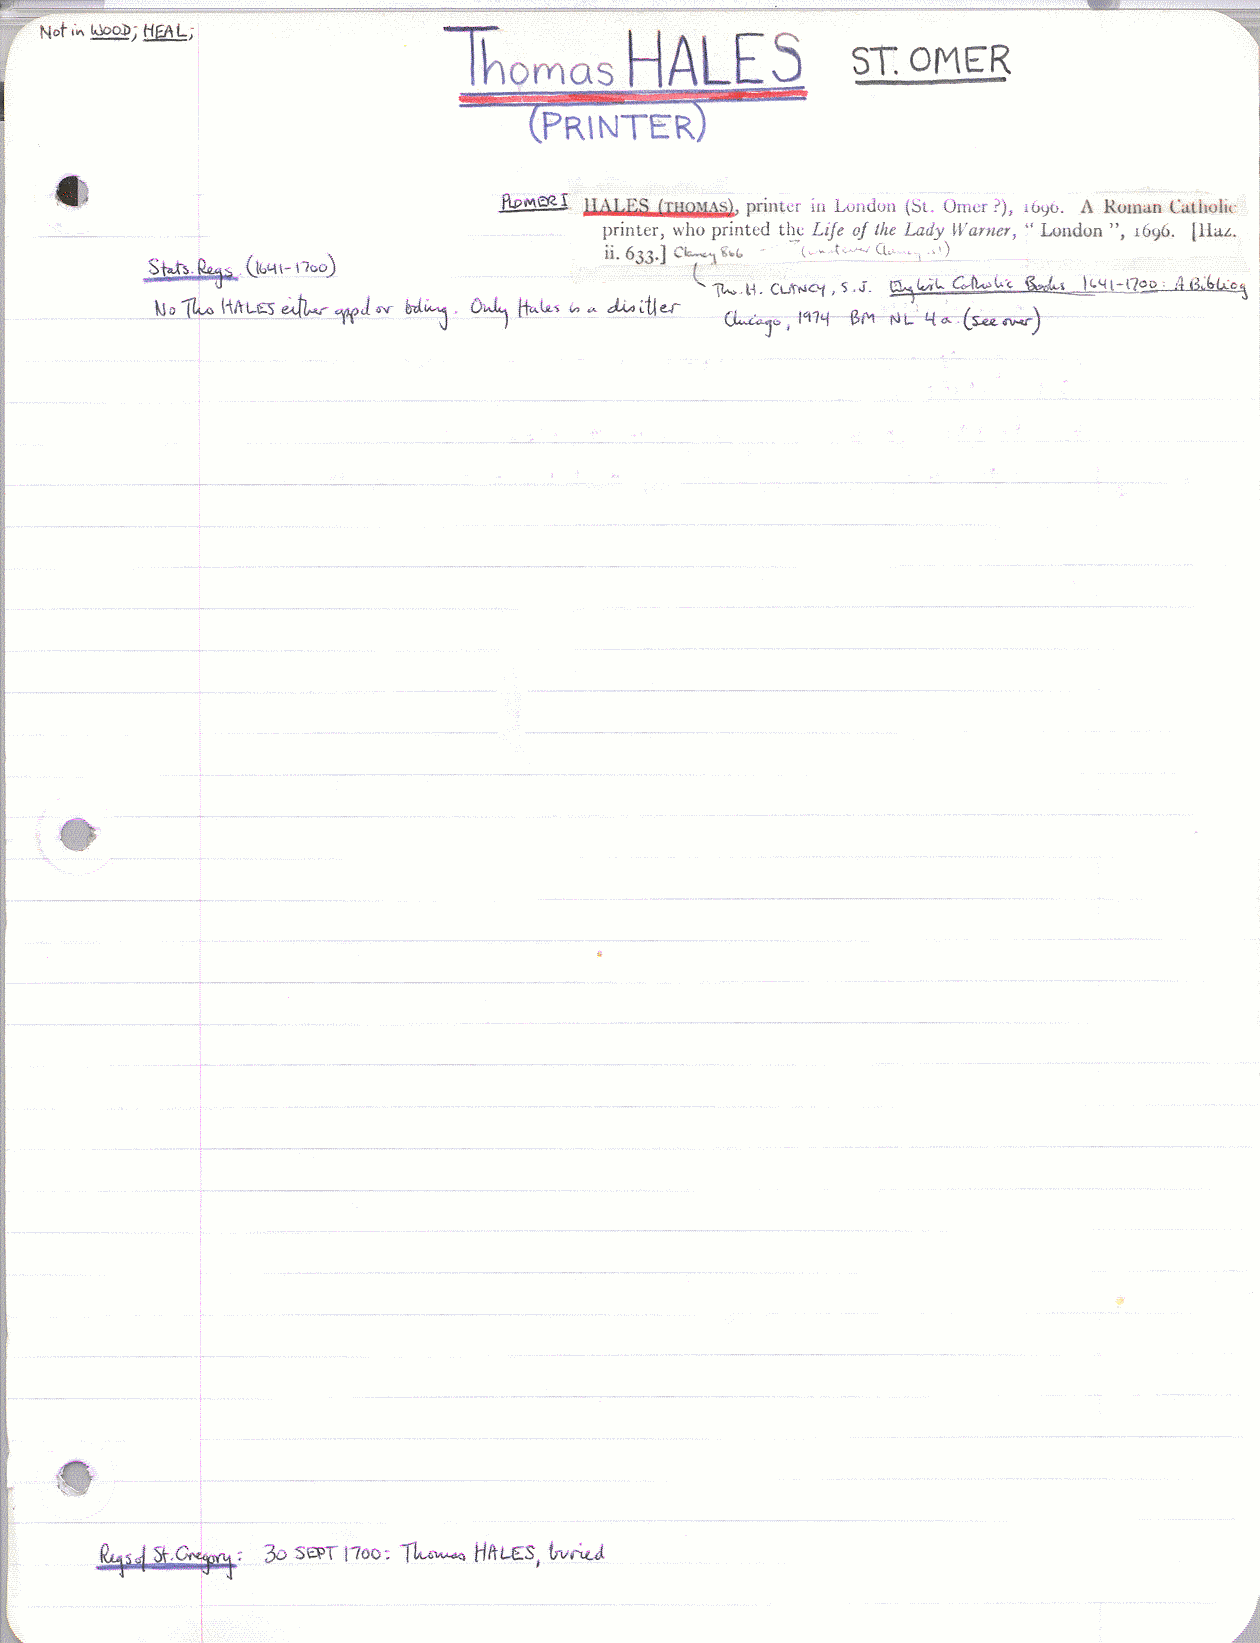 Not in WOOD; HEAL;
Thomas HALES ST. OMER
(PRINTER)
PLOMER I HALES (THOMAS), printer in London (St. Omer ?), 1696. A Roman Catholic
printer, who printed the Life of the Lady Warner, “ London ”, 1696. [Haz.
ii. 633.] Clancy 866
Stats. Regs. (1641-1700)
Tho. H. CLANCY, S.J. English Catholic Books 1641-1700: A Bibliog
No Tho HALES either appd or bding. Only Hales is a distiller
Chicago, 1974 BM NL 4a (see over)
Regs of St. Gregory: 30 SEPT 1700: Thomas HALES, buried